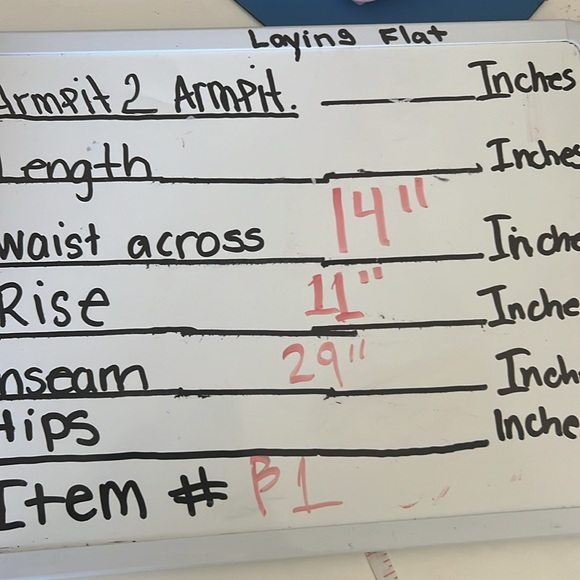 Laying Flat
Armpit 2 Armpit. Inches
Length Inches
waist across 14" Inche
Rise 11" Inche
nseam 29" Inch
Hips Inche
Item # B1